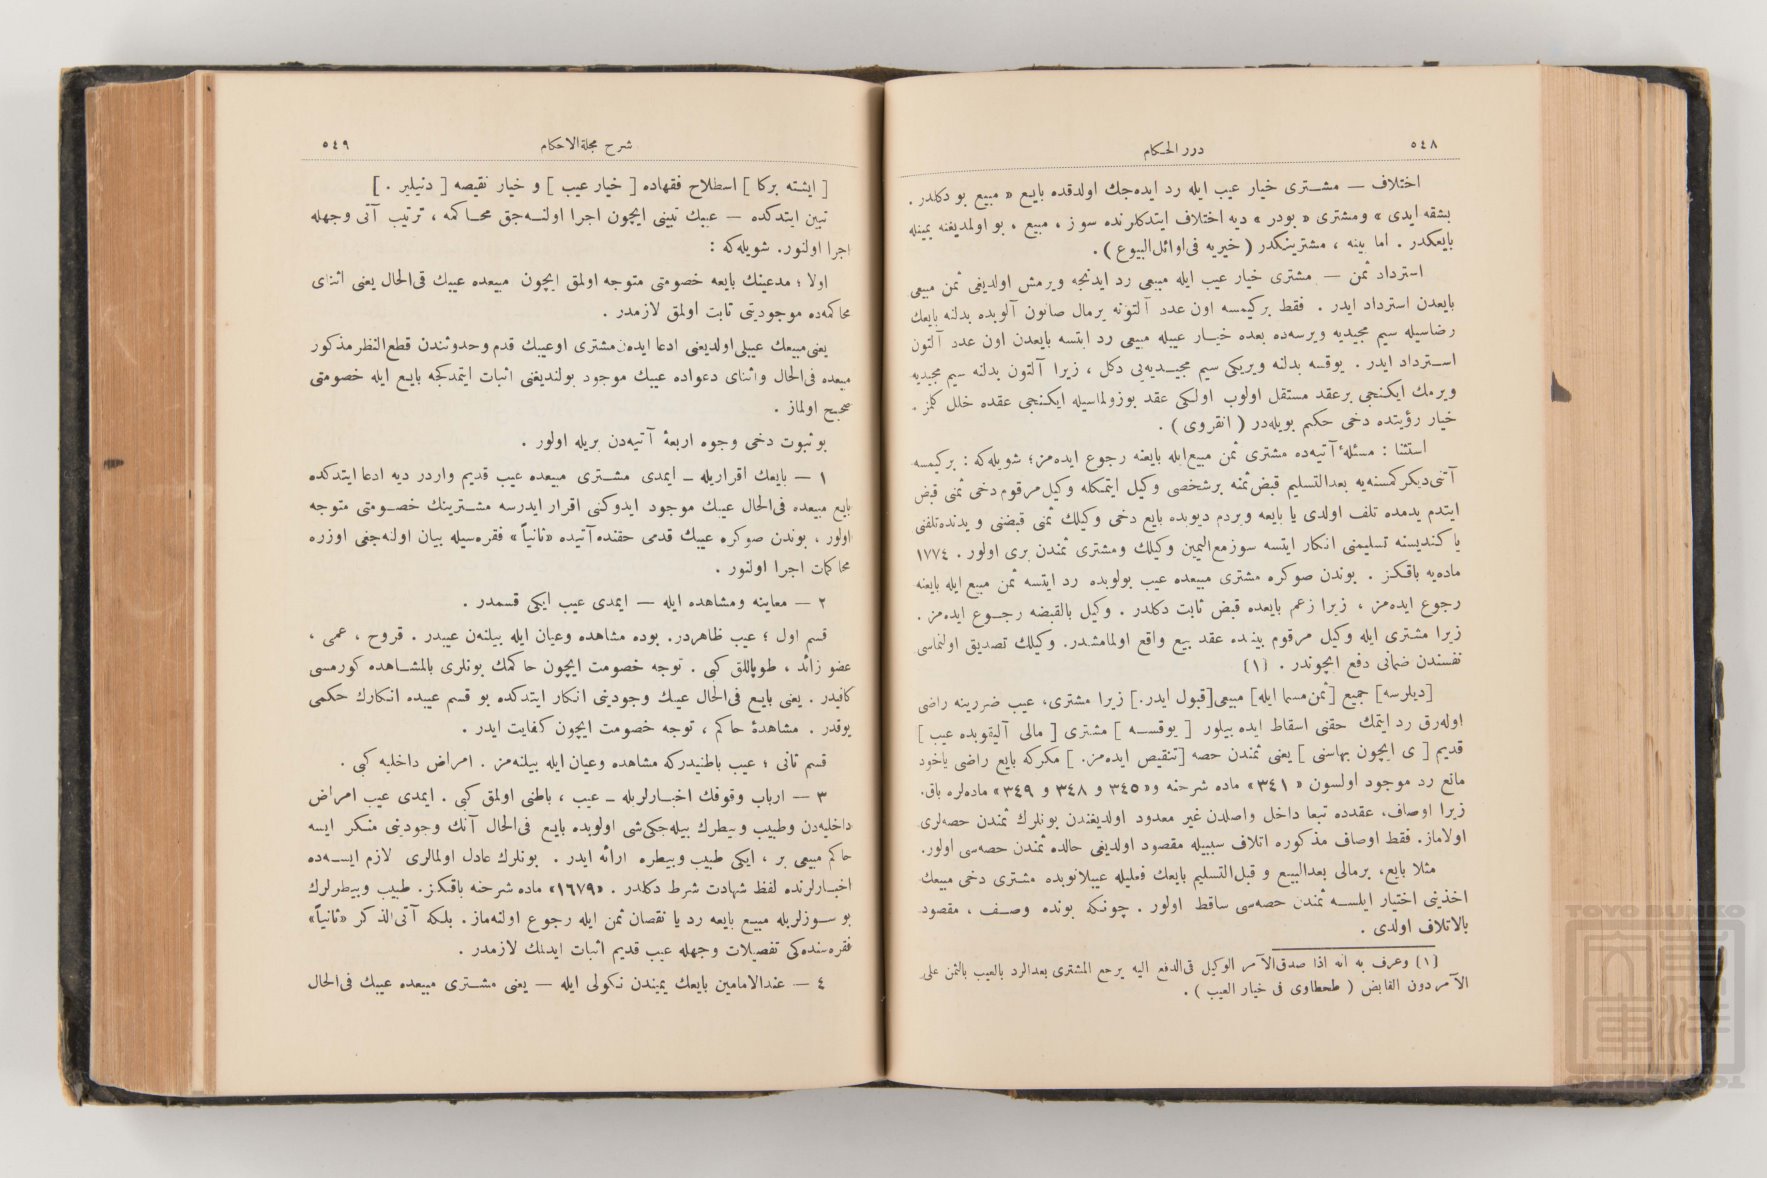 ٥٤٨
درر الحكام
اختلاف — مشـترى خيار عيب ايله رد ايده‌جك اولدقده بايع « مبيع بو دكلدر .
بشقه ايدى » ومشترى « بودر » ديه اختلاف ايتدكلرنده سوز ، مبيع ، بو اولمديغنه يمينله
بايعكدر . اما بينه ، مشترينكدر ( خيريه فى‌اوائل‌البيوع ) .
استرداد ثمن — مشترى خيار عيب ايله مبيعى رد ايدنجه ويرمش اولديغى ثمن مبيعى
بايعدن استرداد ايدر . فقط بركيمسه اون عدد آلتونه برمال صاتون آلوبده بدلنه بايعك
رضاسيله سيم مجيديه ويرسه‌ده بعده خيـار عيبله مبيعى رد ايتسه بايعدن اون عدد آلتون
اسـترداد ايدر . يوقسه بدلنه ويريكى سيم مجيـديه‌يى دكل ، زيرا آلتون بدلنه سيم مجيديه
ويرمك ايكنجى برعقد مستقل اولوب اولكى عقد بوزولماسيله ايكنجى عقده خلل كلمز .
خيار رؤيتده دخى حكم بويله‌در ( انقروى ) .
استثنا : مسئلهٔ آتيه‌ده مشترى ثمن مبيع‌ايله بايعنه رجوع ايده‌مز ؛ شويله‌كه : بركيمسه
آتنى‌ديكركمسنه‌يه بعدالتسليم قبض‌ثمنه برشخصى وكيل ايتمكله وكيل‌مرقوم دخى ثمنى قبض
ايتدم يدمده تلف اولدى يا بايعه ويردم ديوبده بايع دخى وكيلك ثمنى قبضنى و يدنده‌تلفنى
يا كنديسنه تسليمنى انكار ايتسه سوزمع‌اليمين وكيلك ومشترى ثمندن برى اولور . ١٧٧٤
ماده‌يه باقكز . بوندن صوكره مشترى مبيعده عيب بولوبده رد ايتسه ثمن مبيع ايله بايعنه
رجوع ايده‌مز ، زيرا زعم بايعده قبض ثابت دكلدر . وكيل بالقبضه رجـوع ايده‌مز .
زيرا مشترى ايله وكيل مرقوم بينـده عقد بيع واقع اولمامشدر. وكيلك تصديق اولنماسى
نفسندن ضمانى دفع ايچوندر . (١)
[ديلرسه] جميع [ثمن‌مسما ايله] مبيعى [قبول ايدر.] زيرا مشترى، عيب ضررينه راضى
اوله‌رق رد ايتمك حقنى اسقاط ايده بيلور [ يوقسـه ] مشترى [ مالى آليقوبده عيب ]
قديم [ ى ايچون بهاسنى ] يعنى ثمندن حصه [تنقيص ايده‌مز. ] مكركه بايع راضى ياخود
مانع رد موجود اولسون « ٣٤١ » ماده شرحنه و« ٣٤٥ و ٣٤٨ و ٣٤٩ » ماده‌لره باق.
زيرا اوصاف، عقدده تبعا داخل واصلدن غير معدود اولديغندن بونلرك ثمندن حصه‌لرى
اولاماز. فقط اوصاف مذكوره اتلاف سببيله مقصود اولديغى حالده ثمندن حصه‌سى اولور.
مثلا بايع، برمالى بعدالبيع و قبل‌التسليم بايعك فعليله عيبلانوبده مشـترى دخى مبيعك
اخذينى اختيار ايلسـه ثمندن حصه‌سى ساقط اولور . چونكه بونده وصـف ، مقصود
بالاتلاف اولدى .
(١) وعرف به انه اذا صدق‌الآمر الوكيل فى‌الدفع اليه يرجع المشترى بعدالرد بالعيب بالثمن على
الآمر دون القابض ( طحطاوى فى خيار العيب ) .
شرح مجلة‌الاحكام
٥٤٩
[ ايشته بركا ] اسطلاح فقهاده [ خيار عيب ] و خيار نقيصه [ دنيلير . ]
تبين ايتدكده — عيبك تبينى ايچون اجرا اولنـه‌جق محـاكمه ، ترتيب آتى وجهله
اجرا اولنور. شويله‌كه :
اولا ؛ مدعينك بايعه خصومتى متوجه اولمق ايچون مبيعده عيبك فى‌الحال يعنى اثناى
محاكمه‌ده موجوديتى ثابت اولمق لازمدر .
يعنى‌مبيعك عيبلى‌اولديغنى ادعا ايده‌ن‌مشترى اوعيبك قدم وحدوثندن قطع‌النظر مذكور
مبيعده فى‌الحال واثناى دعواده عيبك موجود بولنديغنى اثبات ايتمدكجه بايع ايله خصومتى
صحيح اولماز .
بو ثبوت دخى وجوه اربعهٔ آتيه‌دن بريله اولور .
١ — بايعك اقراريله — ايمدى مشـترى مبيعده عيب قديم واردر ديه ادعا ايتدكده
بايع مبيعده فى‌الحال عيبك موجود ايدوكنى اقرار ايدرسه مشـترينك خصـومتى متوجه
اولور ، بوندن صوكره عيبك قدمى حقنده آتيده «ثانياً» فقره‌سيله بيان اولنه‌جغى اوزره
محاكمات اجرا اولنور .
٢ — معاينه ومشاهده ايله — ايمدى عيب ايكى قسمدر .
قسم اول ؛ عيب ظاهردر. بوده مشاهده وعيان ايله بيلنه‌ن عيبدر . قروح ، عمى ،
عضو زائد ، طوپاللق كبى . توجه خصومت ايچون حاكمك بونلرى بالمشـاهده كورمسى
كافيدر . يعنى بايع فى‌الحال عيبك وجودينى انكار ايتدكده بو قسم عيبده انكارك حكمى
يوقدر . مشاهدهٔ حاكم ، توجه خصومت ايچون كفايت ايدر .
قسم ثانى ؛ عيب باطنيدركه مشاهده وعيان ايله بيلنه‌مز . امراض داخليه كبى .
٣ — ارباب وقوفك اخبـارلريله — عيب ، باطنى اولمق كبى . ايمدى عيب امراض
داخليه‌دن وطبيب وبيطرك بيله‌جكى‌شى اولوبده بايع فى‌الحال آنك وجودينى منكر ايسه
حاكم مبيعى بر ، ايكى طبيب وبيطره ارائه ايدر . بونلرك عادل اولمالرى لازم ايسـه‌ده
اخبـارلرنده لفظ شهادت شرط دكلدر . «١٦٧٩» ماده شرحنه باقكز. طبيب وبيطرلرك
بو سـوزلريله مبيع بايعه رد يا نقصان ثمن ايله رجوع اولنه‌ماز . بلكه آتى‌الذكر «ثانياً»
فقره‌سنده‌كى تفصيلات وجهله عيب قديم اثبات ايدلمك لازمدر .
٤ — عندالامامين بايعك يميندن نكولى ايله — يعنى مشـترى مبيعده عيبك فى‌الحال
TOYO BUNKO
東洋文庫